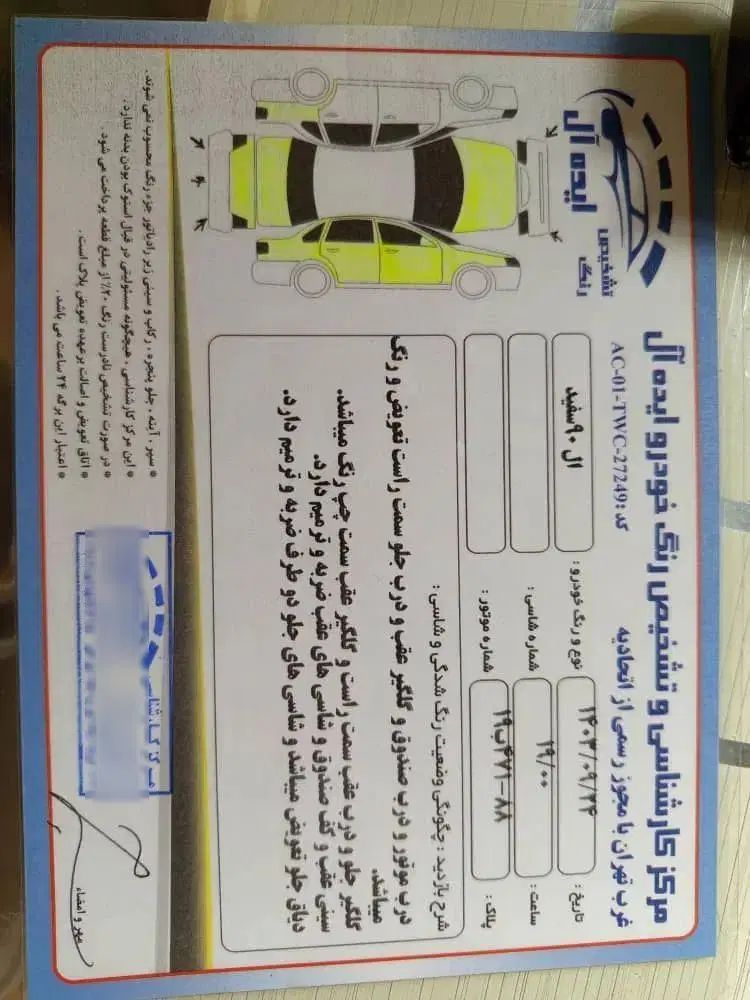 مرکز کارشناسی و تشخیص رنگ خودرو ایده آل
غرب تهران با مجوز رسمی از اتحادیه
کد: AC-01-TWC-27249
تشخیص رنگ
ایده آل
تاریخ: ۱۴۰۳/۰۹/۲۴
نوع و رنگ خودرو: ال ۹۰ سفید
ساعت: ۱۹/۰۰
شماره شاسی:
پلاک: ۱۹ب۴۷۱-۸۸
شماره موتور:
شرح بازدید: چگونگی وضعیت رنگ شدگی و شاسی:
درب موتور و درب صندوق و گلگیر عقب و درب جلو سمت راست تعویض و رنگ
میباشد.
گلگیر جلو و درب عقب سمت راست و گلگیر عقب سمت چپ رنگ میباشد.
سینی عقب و کف صندوق و شاسی های عقب ضربه و ترمیم دارد.
دیاق جلو تعویض میباشد و شاسی های جلو دو طرف ضربه و ترمیم دارد.
* سپر، آینه، جلو پنجره، رکاب و سینی زیر رادیاتور جزء رنگ محسوب نمی شوند.
* این مرکز کارشناسی، هیچگونه مسئولیتی در قبال استوک بودن بدنه ندارد.
* در صورت تشخیص نادرست رنگ ۲۰٪ از مبلغ قطعه پرداخت می شود.
* اتاق تعویض و اصالت برعهده تعویض پلاک است.
* اعتبار این برگه ۲۴ ساعت می باشد.
مرکز کارشناسی
مهر و امضاء